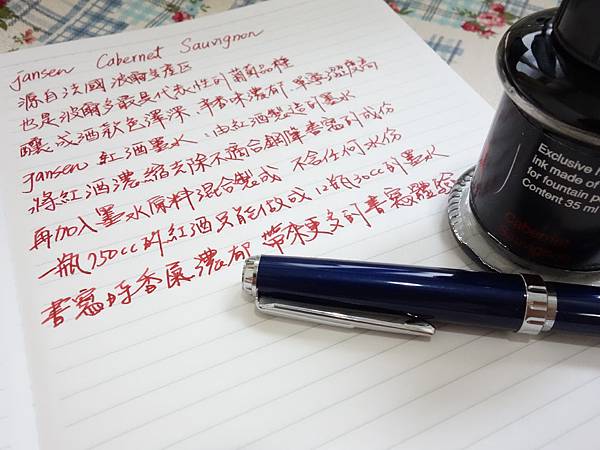 Jansen Cabernet Sauvignon
源自法國波爾多產區
也是波爾多最具代表性的葡萄品種
釀成酒款色澤深、香味濃郁、單寧澀度高
Jansen 紅酒墨水、由紅酒製造的墨水
將紅酒濃縮去除不適合鋼筆書寫的成份
再加入墨水原料混合製成 不含任何水份
一瓶750cc的紅酒只能做成12瓶30cc的墨水
書寫時香氣濃郁 帶來更多的書寫體驗
Exclusive
Ink made of
for fountain
Content 35 ml
Cabernet